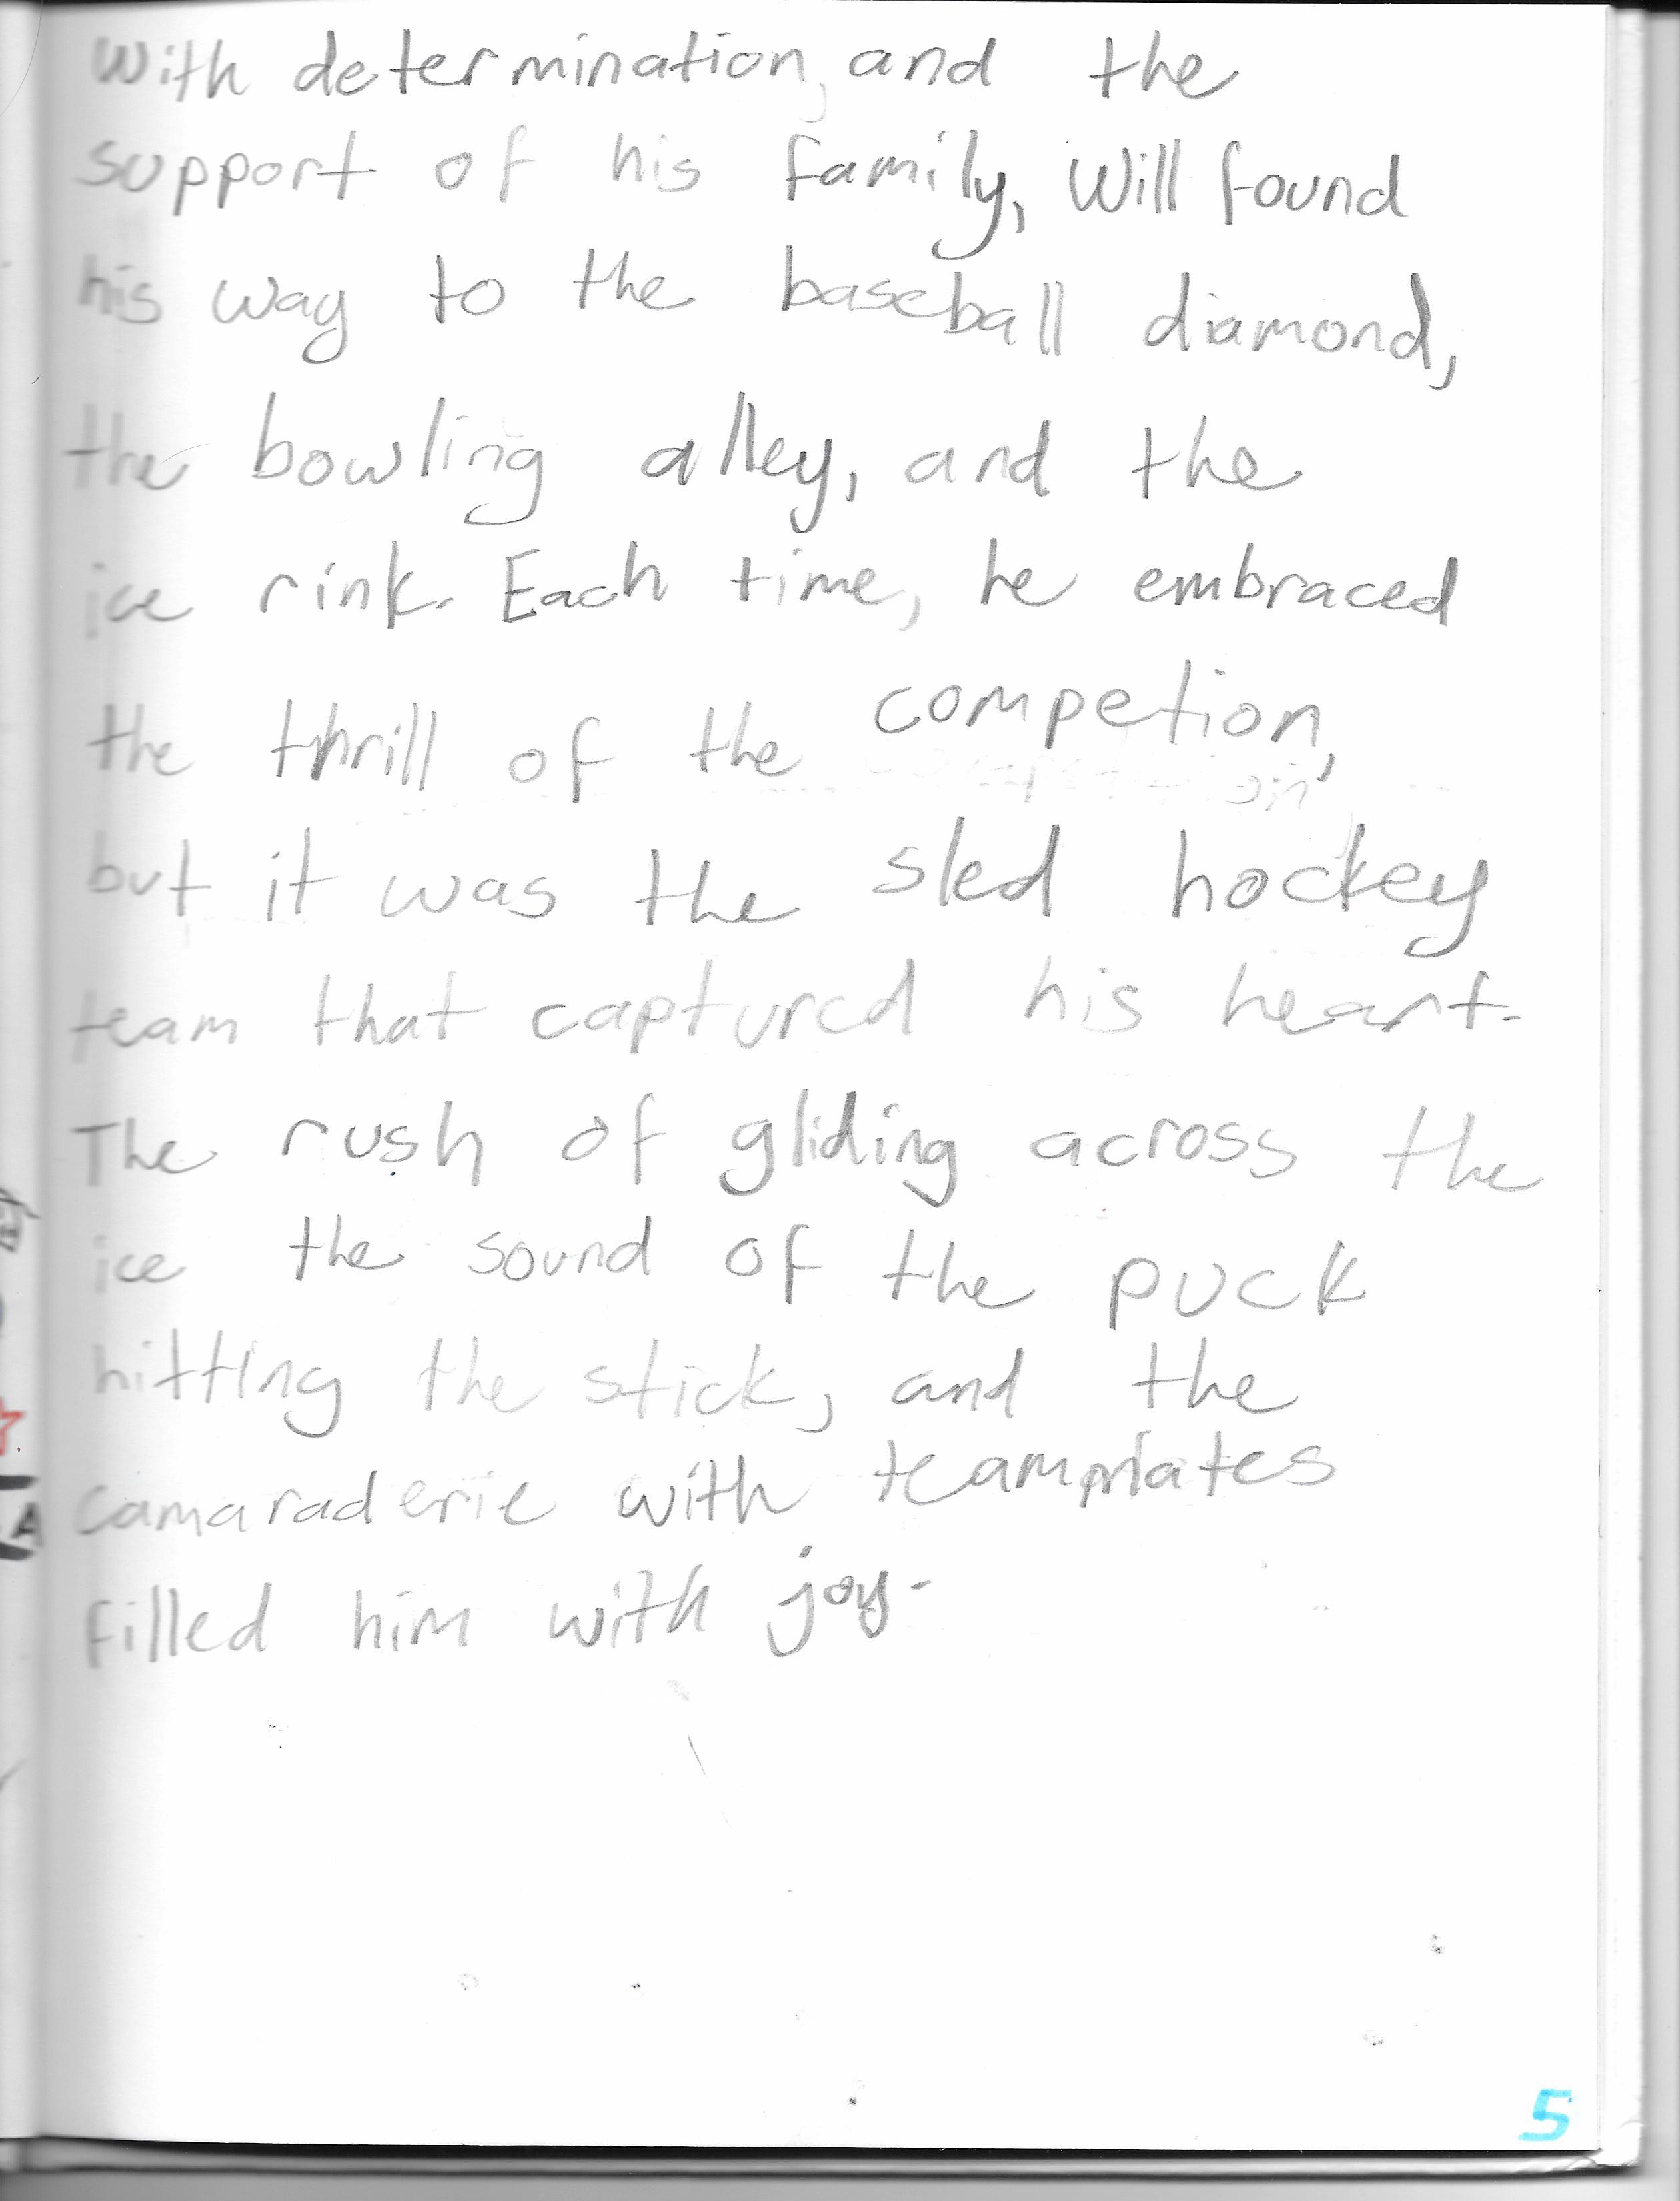 With determination, and the
support of his family, Will found
his way to the baseball diamond,
the bowling alley, and the
ice rink. Each time, he embraced
the thrill of the competion,
but it was the sled hockey
team that captured his heart.
The rush of gliding across the
ice the sound of the puck
hitting the stick, and the
camaraderie with teammates
filled him with joy.
5